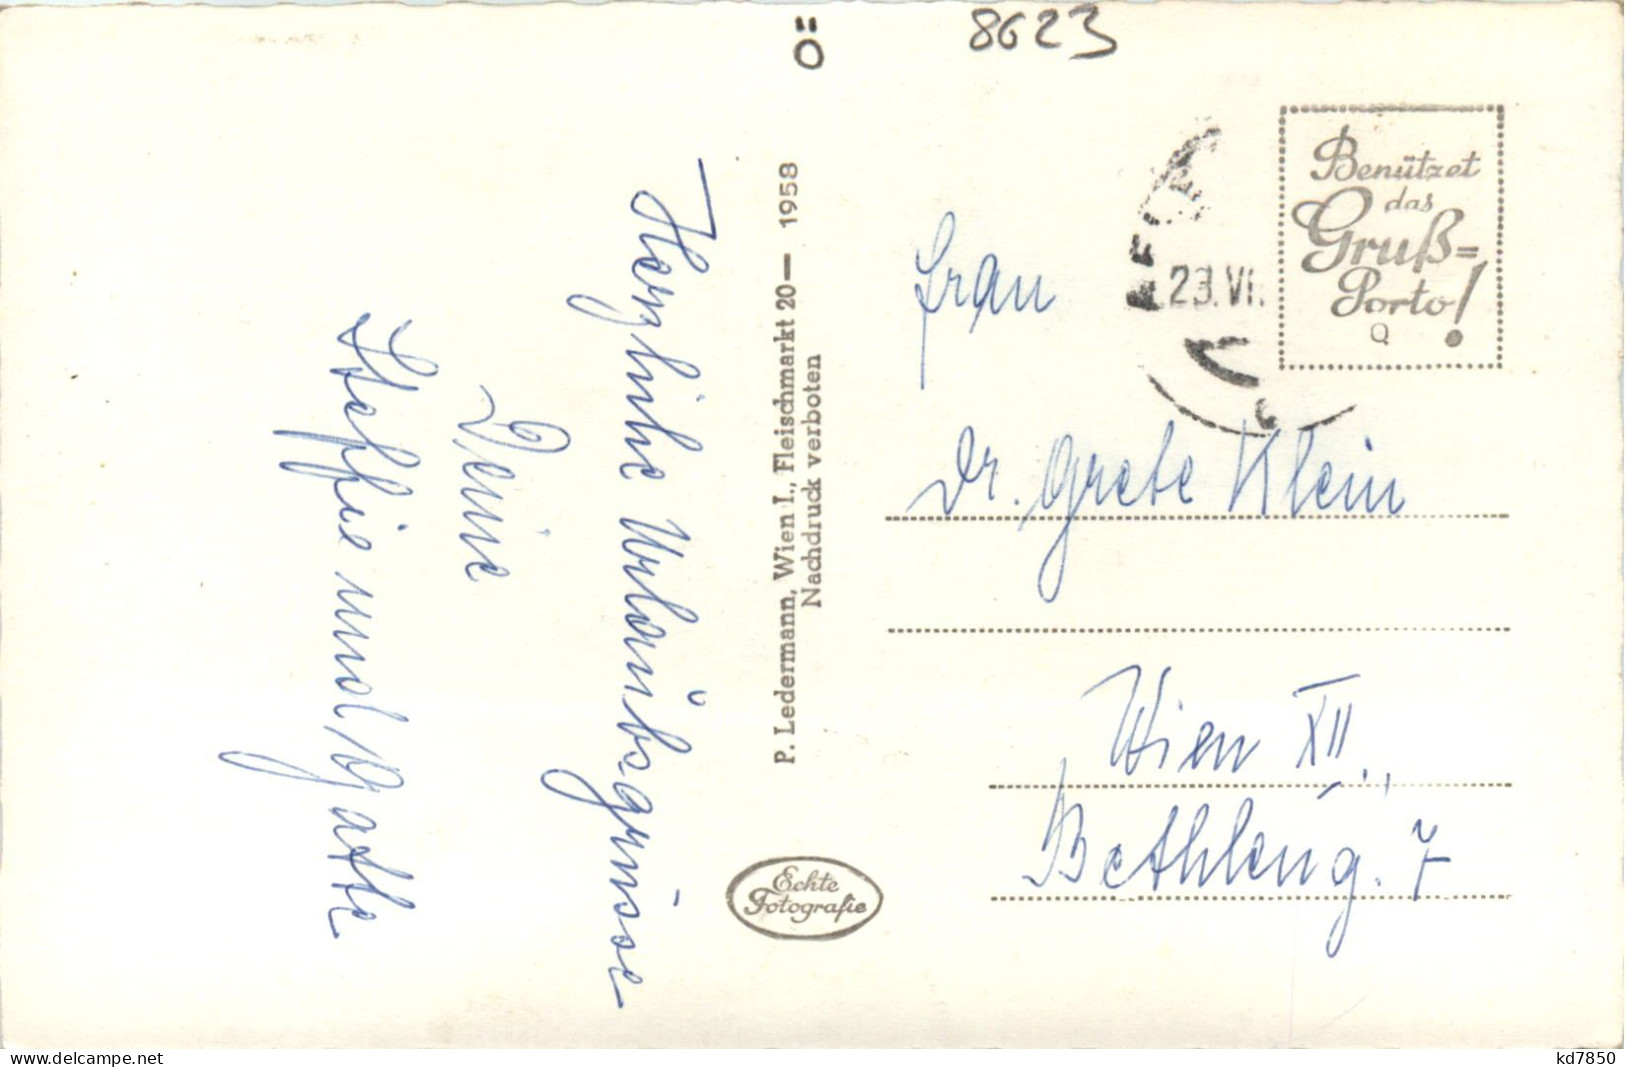 Ö
8623
Herzliche Urlaubsgrüsse
Deine
Steffie und Gatte
P. Ledermann, Wien I., Fleischmarkt 20— 1958
Nachdruck verboten
Echte
Fotografie
23.VI.
Benützet
das
Gruß=
Porto!
Q
Frau
Dr. Grete Klein
Wien XII.,
Bethleng. 7
www.delcampe.net
kd7850